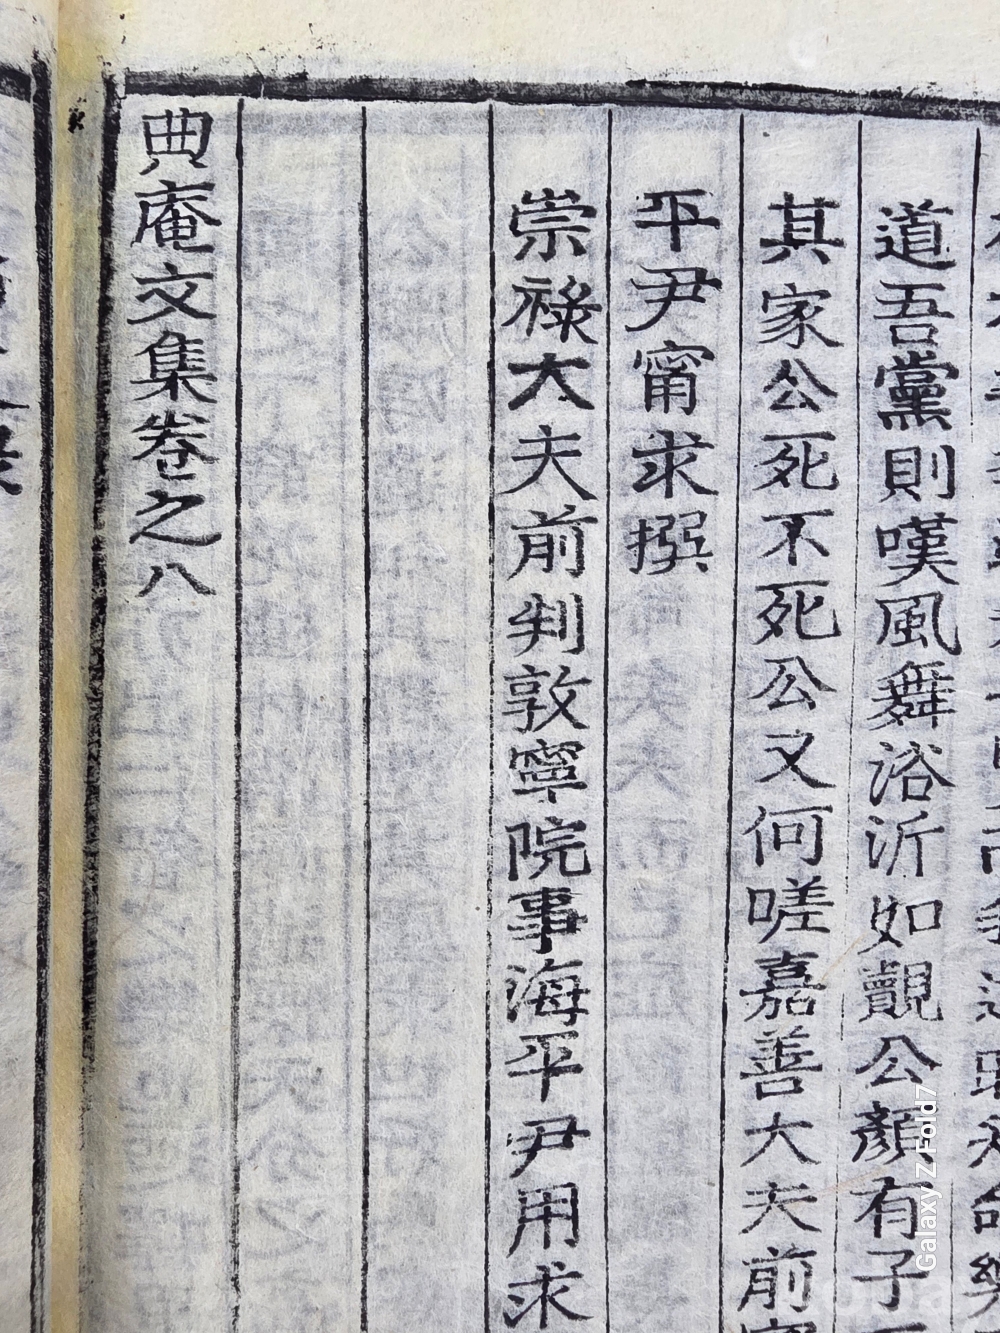 道吾黨則嘆風舞浴沂如覿公顏有子
其家公死不死公又何嗟嘉善大夫前
平尹甯求撰
崇祿大夫前判敦寧院事海平尹用求
典庵文集卷之八
Galaxy Z Fold7